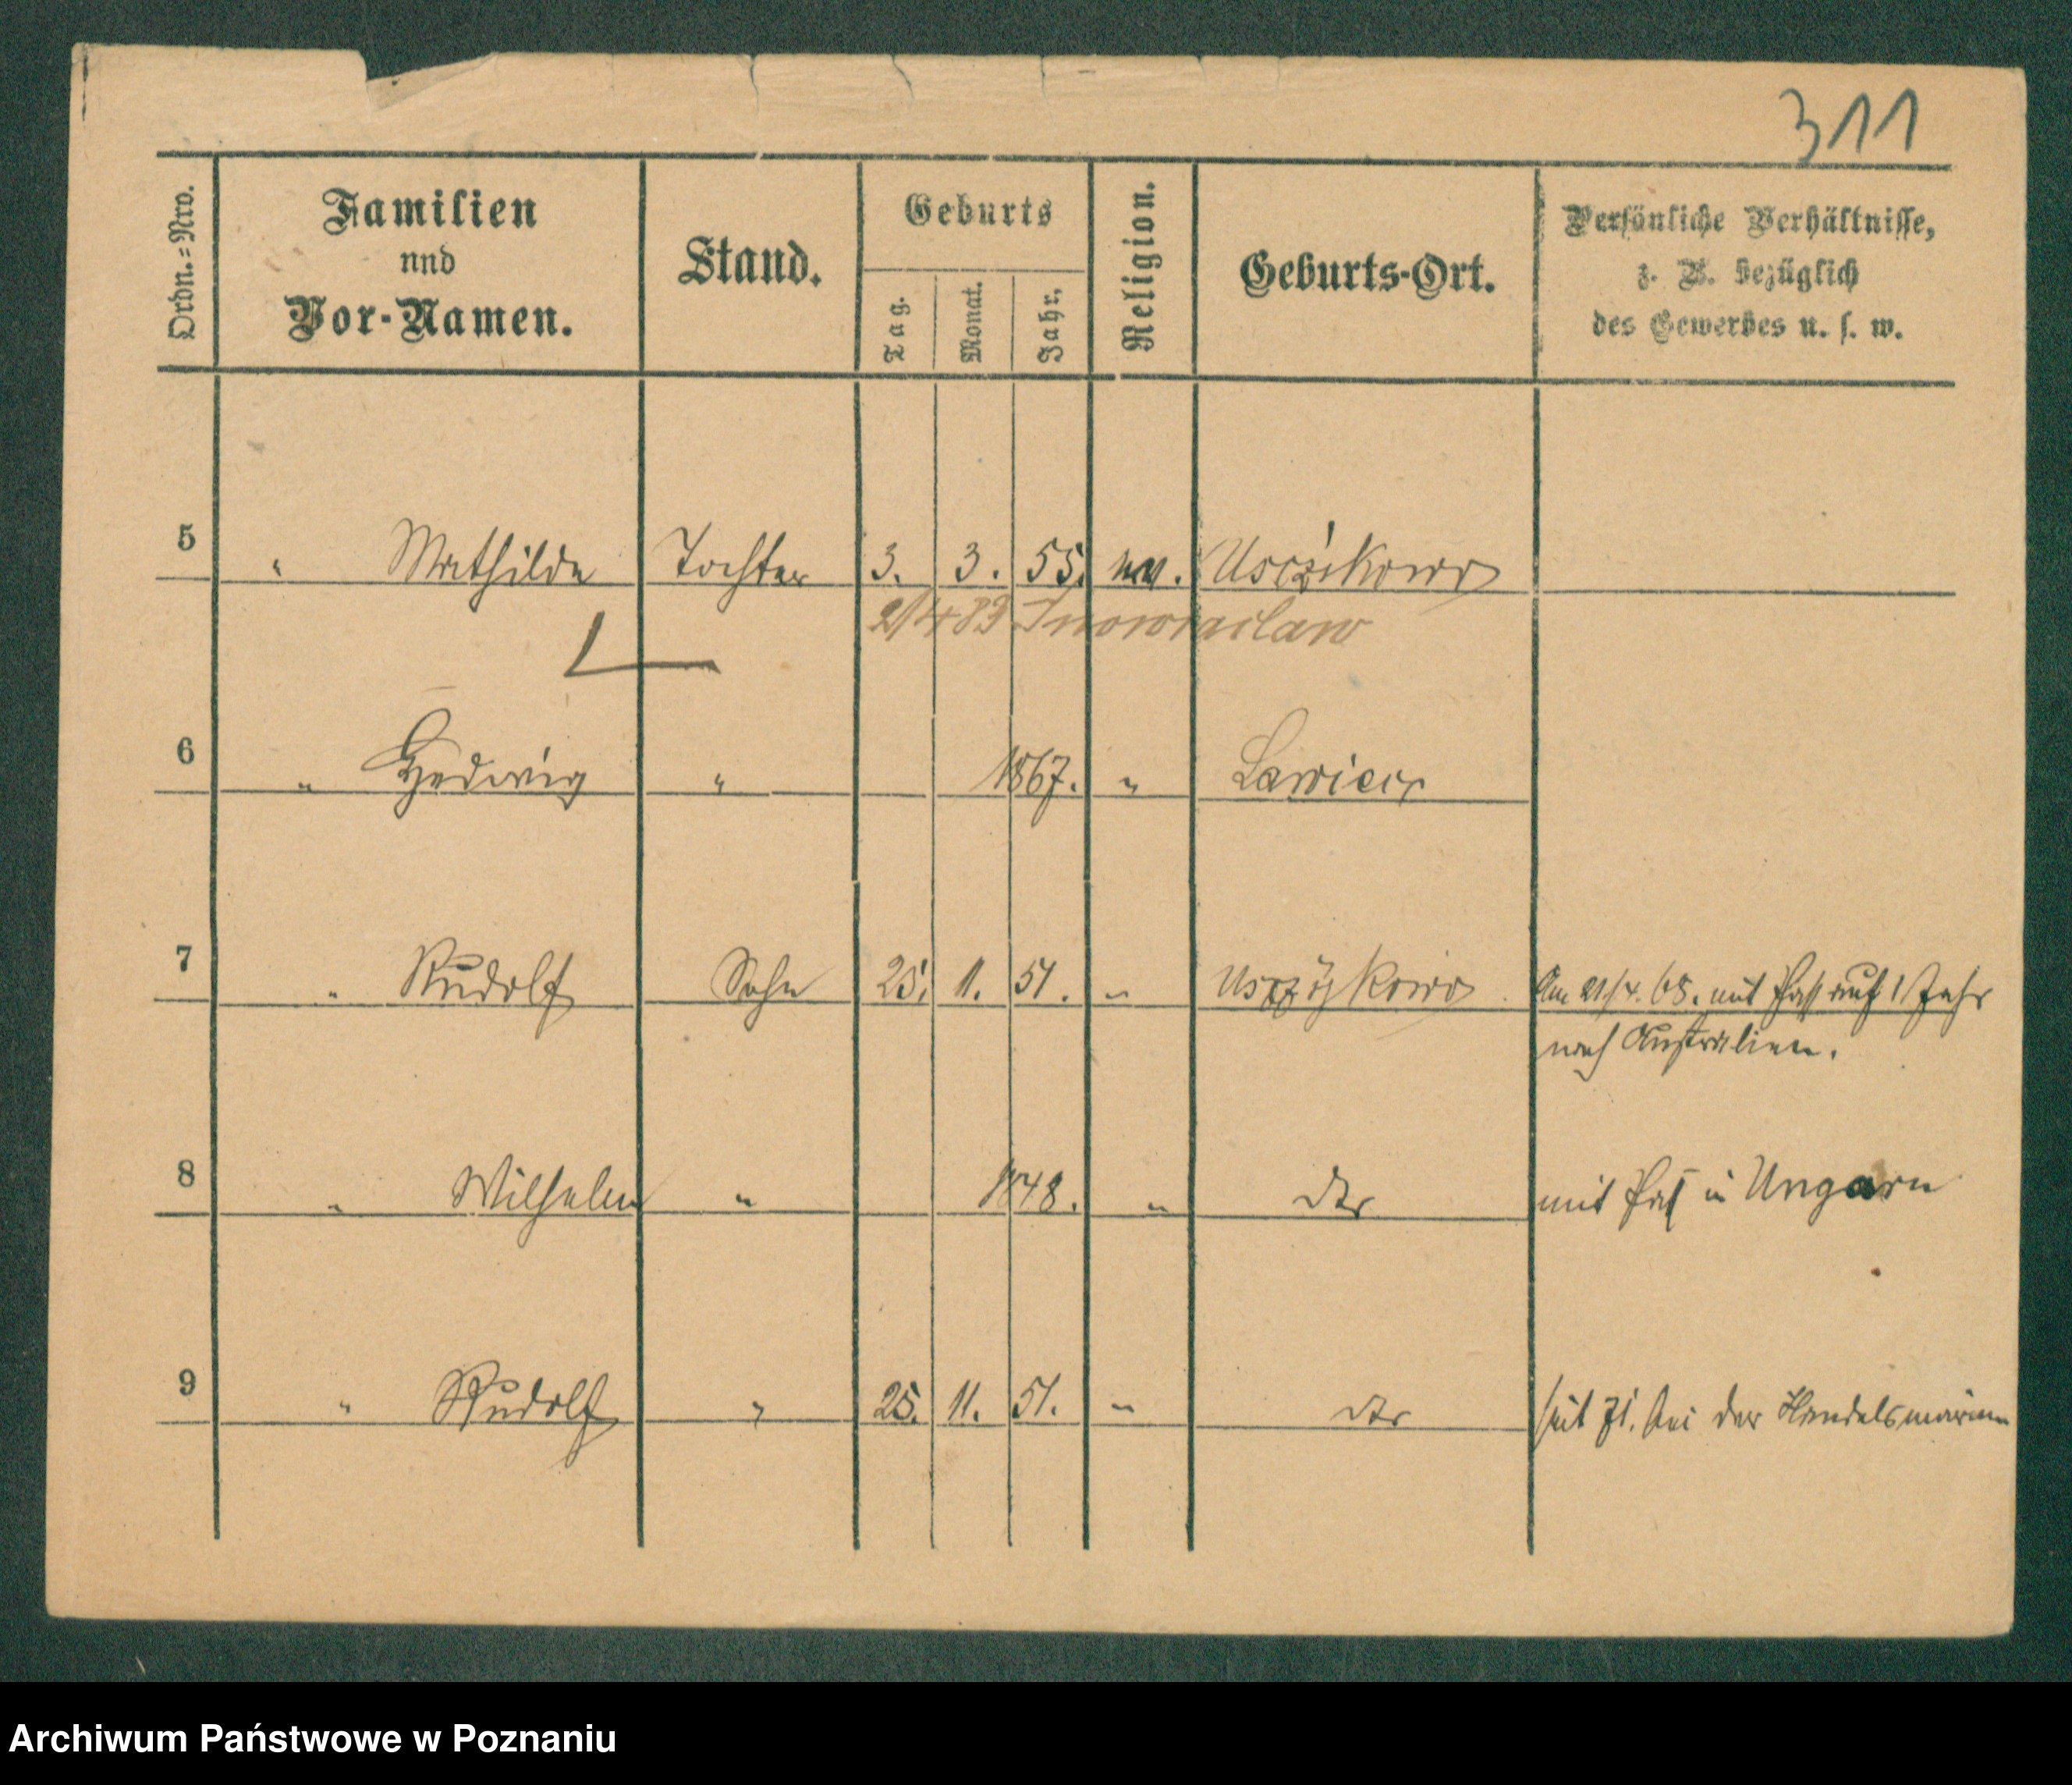 311
Ordn.=Nro. Familien und Vor-Namen. Stand. Geburts Tag. Monat. Jahr. Religion. Geburts-Ort. Persönliche Verhältnisse, z. B. bezüglich des Gewerbes u. s. w.
5 " Mathilde Tochter 3. 3. 55. ev. Uscikowo
21/4 83 Inowraclaw
6 " Hedwig " 1867. "
7 " Rudolf Sohn 25. 11. 51. " Uszczykowo Am 21/4. 68. mit Paß auf 1 Jahr
nach Australien.
8 " Wilhelm " 1848. " dto mit Paß in Ungarn
9 " Rudolf " 25. 11. 51. " dto seit 71. bei der Handelsmarine
Archiwum Państwowe w Poznaniu